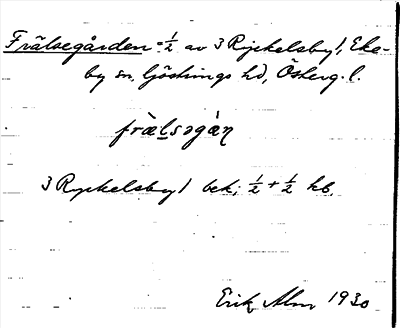 Frälsegården = ½ av 3 Ryckelsby 1, Eke-
by sn, Göstrings hd, Österg. l.
frälsəgàn
3 Ryckelsby 1 bek; ½ + ½ hb.
Erik Alm 1930